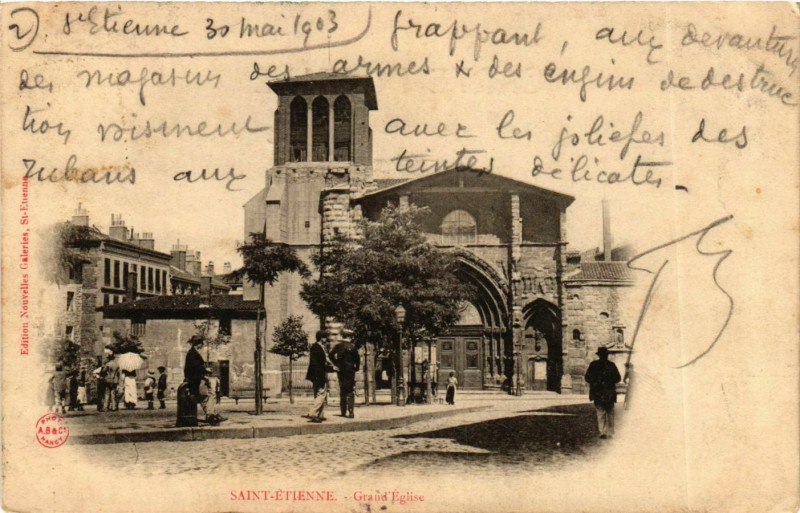 2) St Etienne 30 mai 1903 frappant, aux devantures
des magasins des armes & des engins de destruc
tion voisinent avec les joliefes des
rubans aux teintes délicates._
Edition Nouvelles Galeries, St-Etienne
PHOT
A.B & Cº
NANCY
SAINT-ÉTIENNE. - Grand'Église